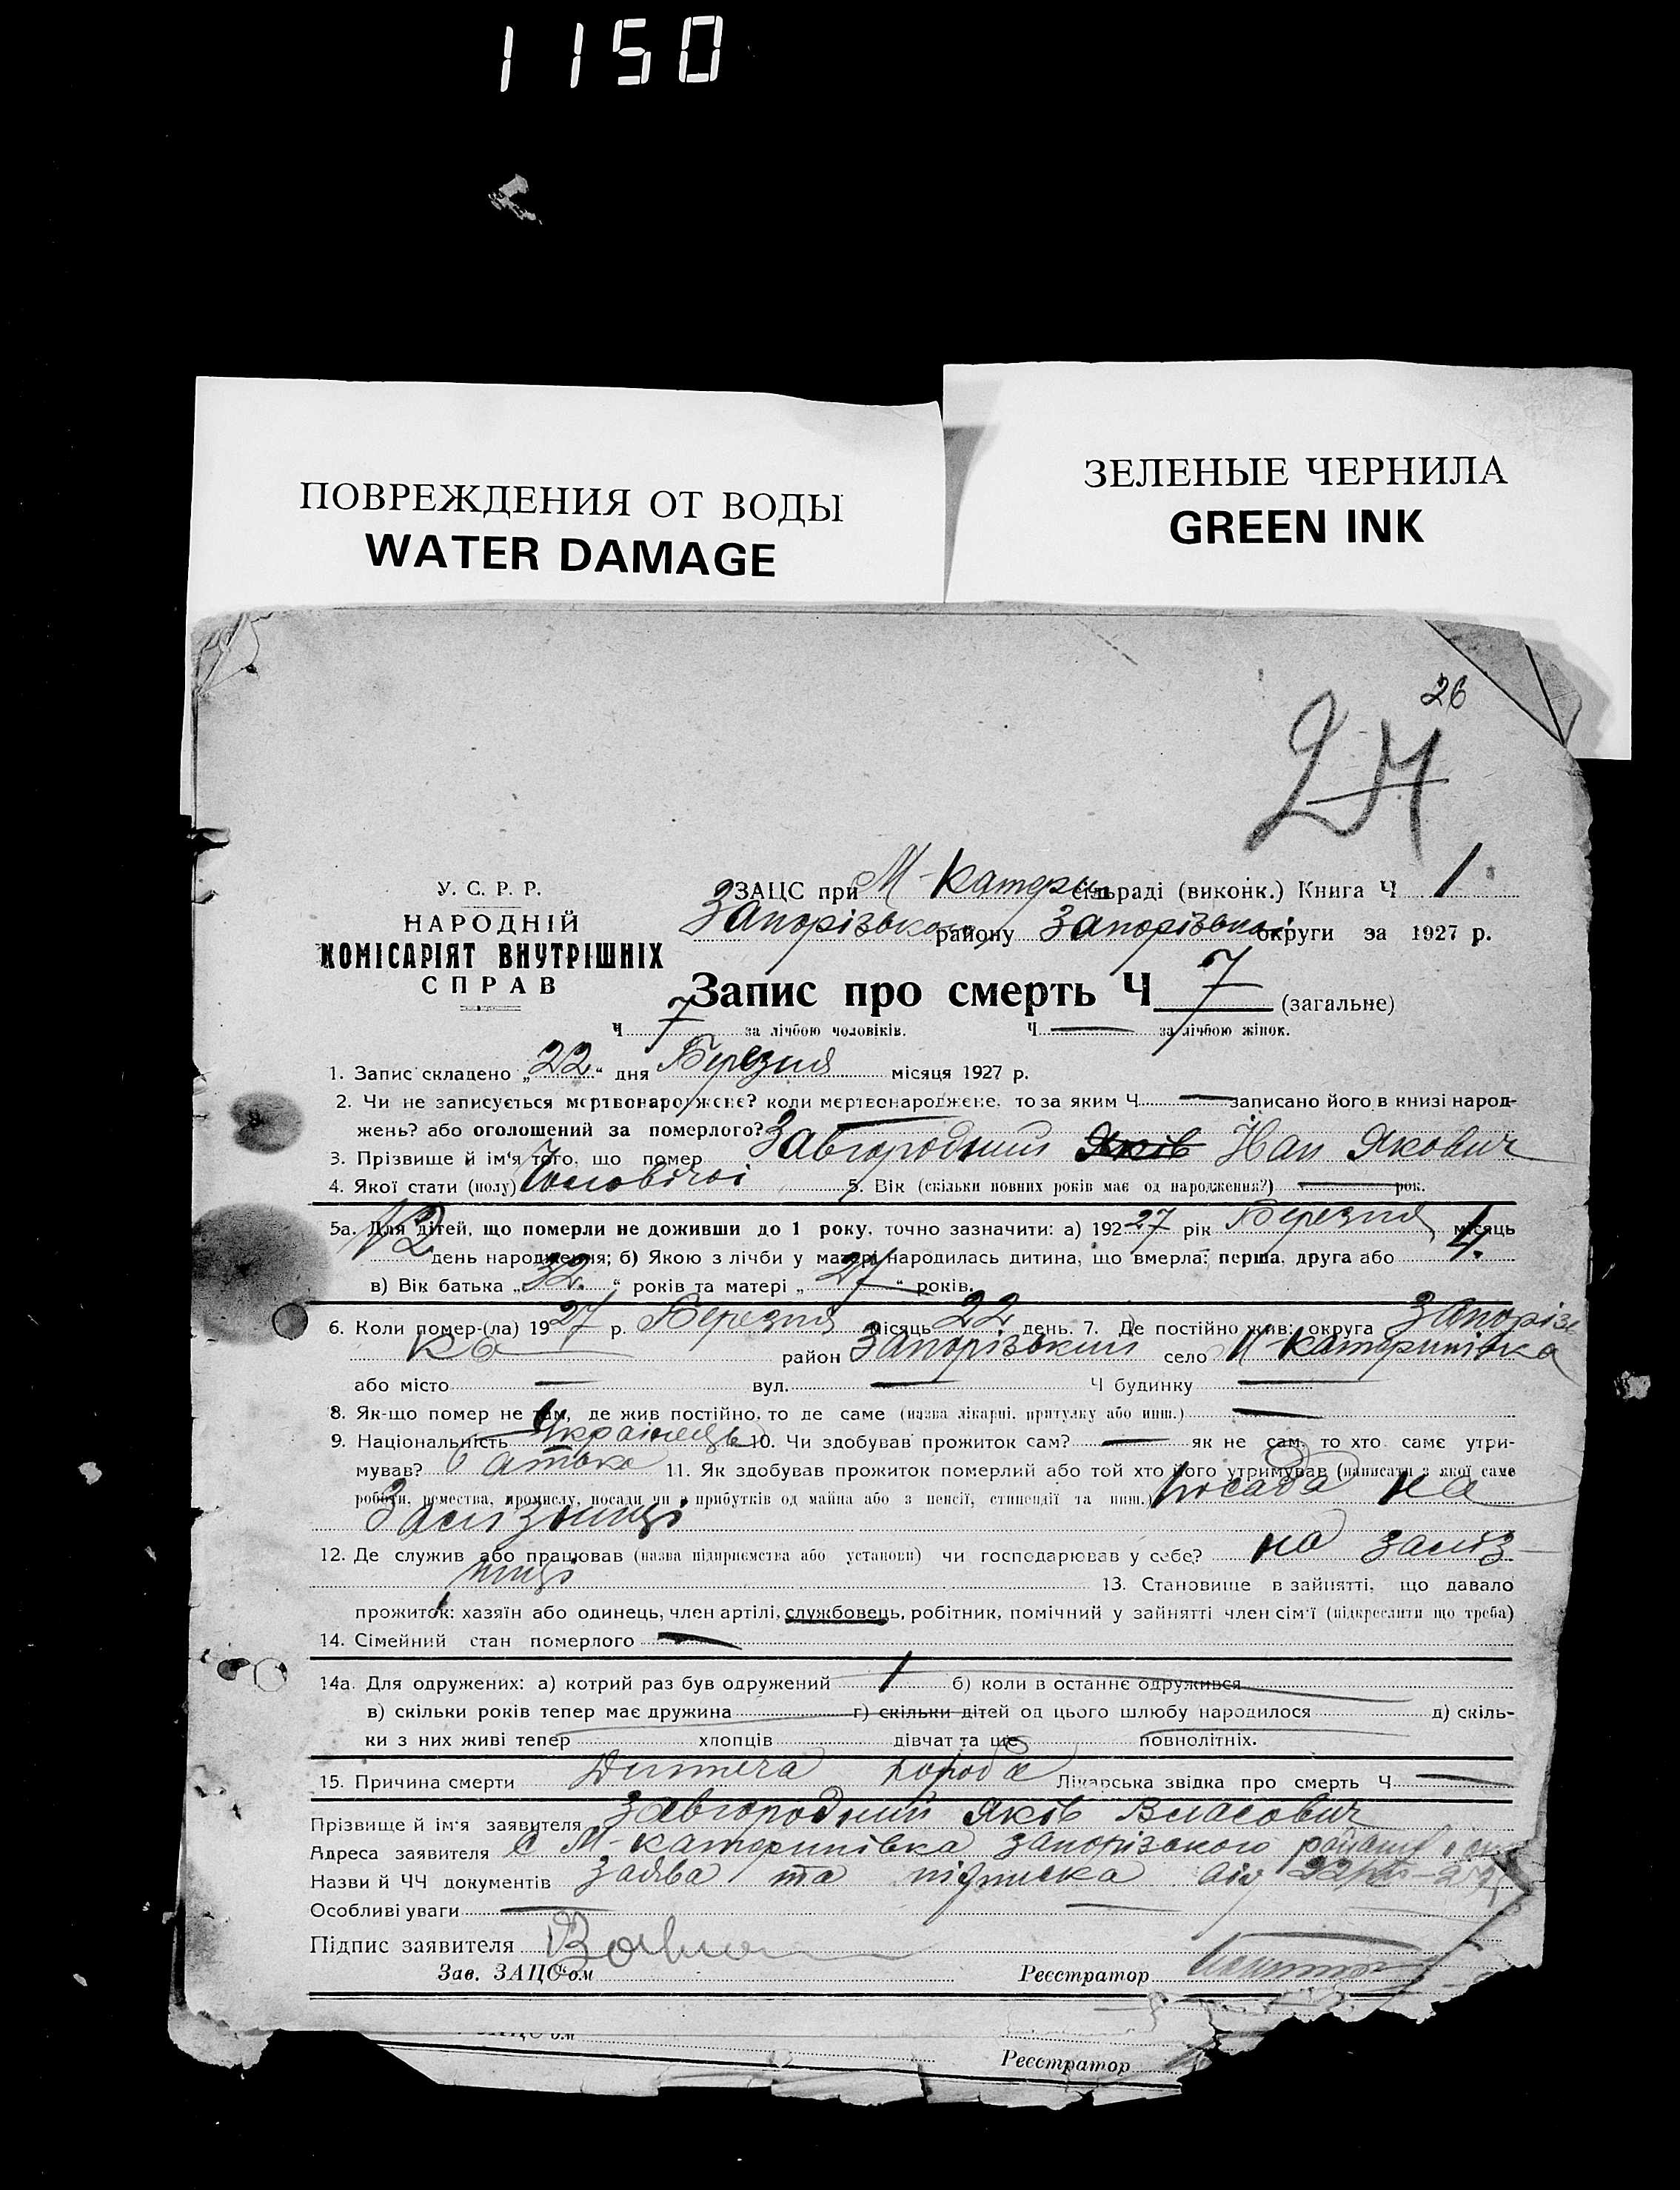 1150
ПОВРЕЖДЕНИЯ ОТ ВОДЫ
WATER DAMAGE
ЗЕЛЕНЫЕ ЧЕРНИЛА
GREEN INK
26
У. С. Р. Р.
НАРОДНІЙ
КОМІСАРІЯТ ВНУТРІШНІХ
СПРАВ
ЗАЦС при М-Катери сільраді (виконк.) Книга Ч 1
Запорізького району Запорізької округи за 1927 р.
Запис про смерть Ч 7 (загальне)
Ч 7 за лічбою чоловіків. Ч — за лічбою жінок.
1. Запис складено „22“ дня Березня місяця 1927 р.
2. Чи не записується мертвонароджене? коли мертвонароджене, то за яким Ч — записано його в книзі народ-
жень? або оголошений за померлого? —
3. Прізвище й ім'я того, що помер Завгородний Яків Іван Якович
4. Якої стати (полу) Чоловічої 5. Вік (скільки повних років має од народження?) — рок.
5а. Для дітей, що померли не доживши до 1 року, точно зазначити: а) 192 27 рік Березня місяць
12 день народження; б) Якою з лічби у матері народилась дитина, що вмерла: перша, друга або 4.
в) Вік батька „32“ років та матері „27“ років.
6. Коли помер-(ла) 19 27 р. Березня місяць 22 день. 7. Де постійно жив: округа Запорізь
ка район Запорізький село М-Катеринівка
або місто — вул. — Ч будинку —
8. Як-що помер не там, де жив постійно, то де саме (назва лікарні, притулку або инш.) —
9. Національність Українець 10. Чи здобував прожиток сам? — як не сам, то хто саме утри-
мував? батько 11. Як здобував прожиток померлий або той хто його утримував (написати з якої саме
роботи, ремества, промислу, посади чи з прибутків од майна або з пенсії, стипендії та инш.) посада на
Залізниці
12. Де служив або працював (назва підприємства або установи) чи господарював у себе? на заліз-
ниці 13. Становище в зайнятті, що давало
прожиток: хазяїн або одинець, член артілі, службовець, робітник, помічний у зайнятті член сім'ї (підкреслити що треба)
14. Сімейний стан померлого —
14а. Для одружених: а) котрий раз був одружений 1 б) коли в останнє одружився
в) скільки років тепер має дружина г) скільки дітей од цього шлюбу народилося д) скіль-
ки з них живі тепер хлопців дівчат та ще повнолітніх.
15. Причина смерти Дитяча хороба Лікарська звідка про смерть Ч —
Прізвище й ім'я заявителя Завгородний Яків Власович
Адреса заявителя с М-катеринівка запорізького району
Назви й ЧЧ документів заява та підписка від
Особливі уваги —
Підпис заявителя
Зав. ЗАЦС'ом Реєстратор
ЗАЦС'ом
Реєстратор